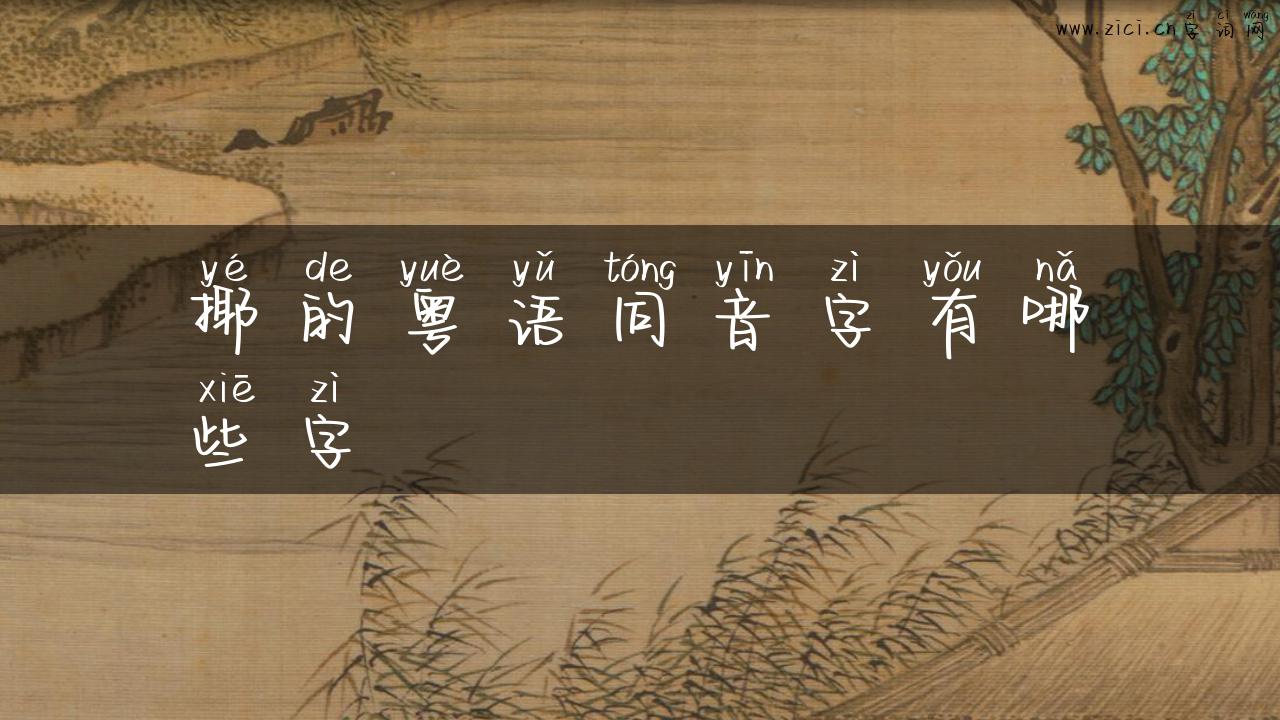 zì cí wǎng
www.zici.cn字词网
yé de yuè yǔ tóng yīn zì yǒu nǎ
揶的粤语同音字有哪
xiē zì
些字